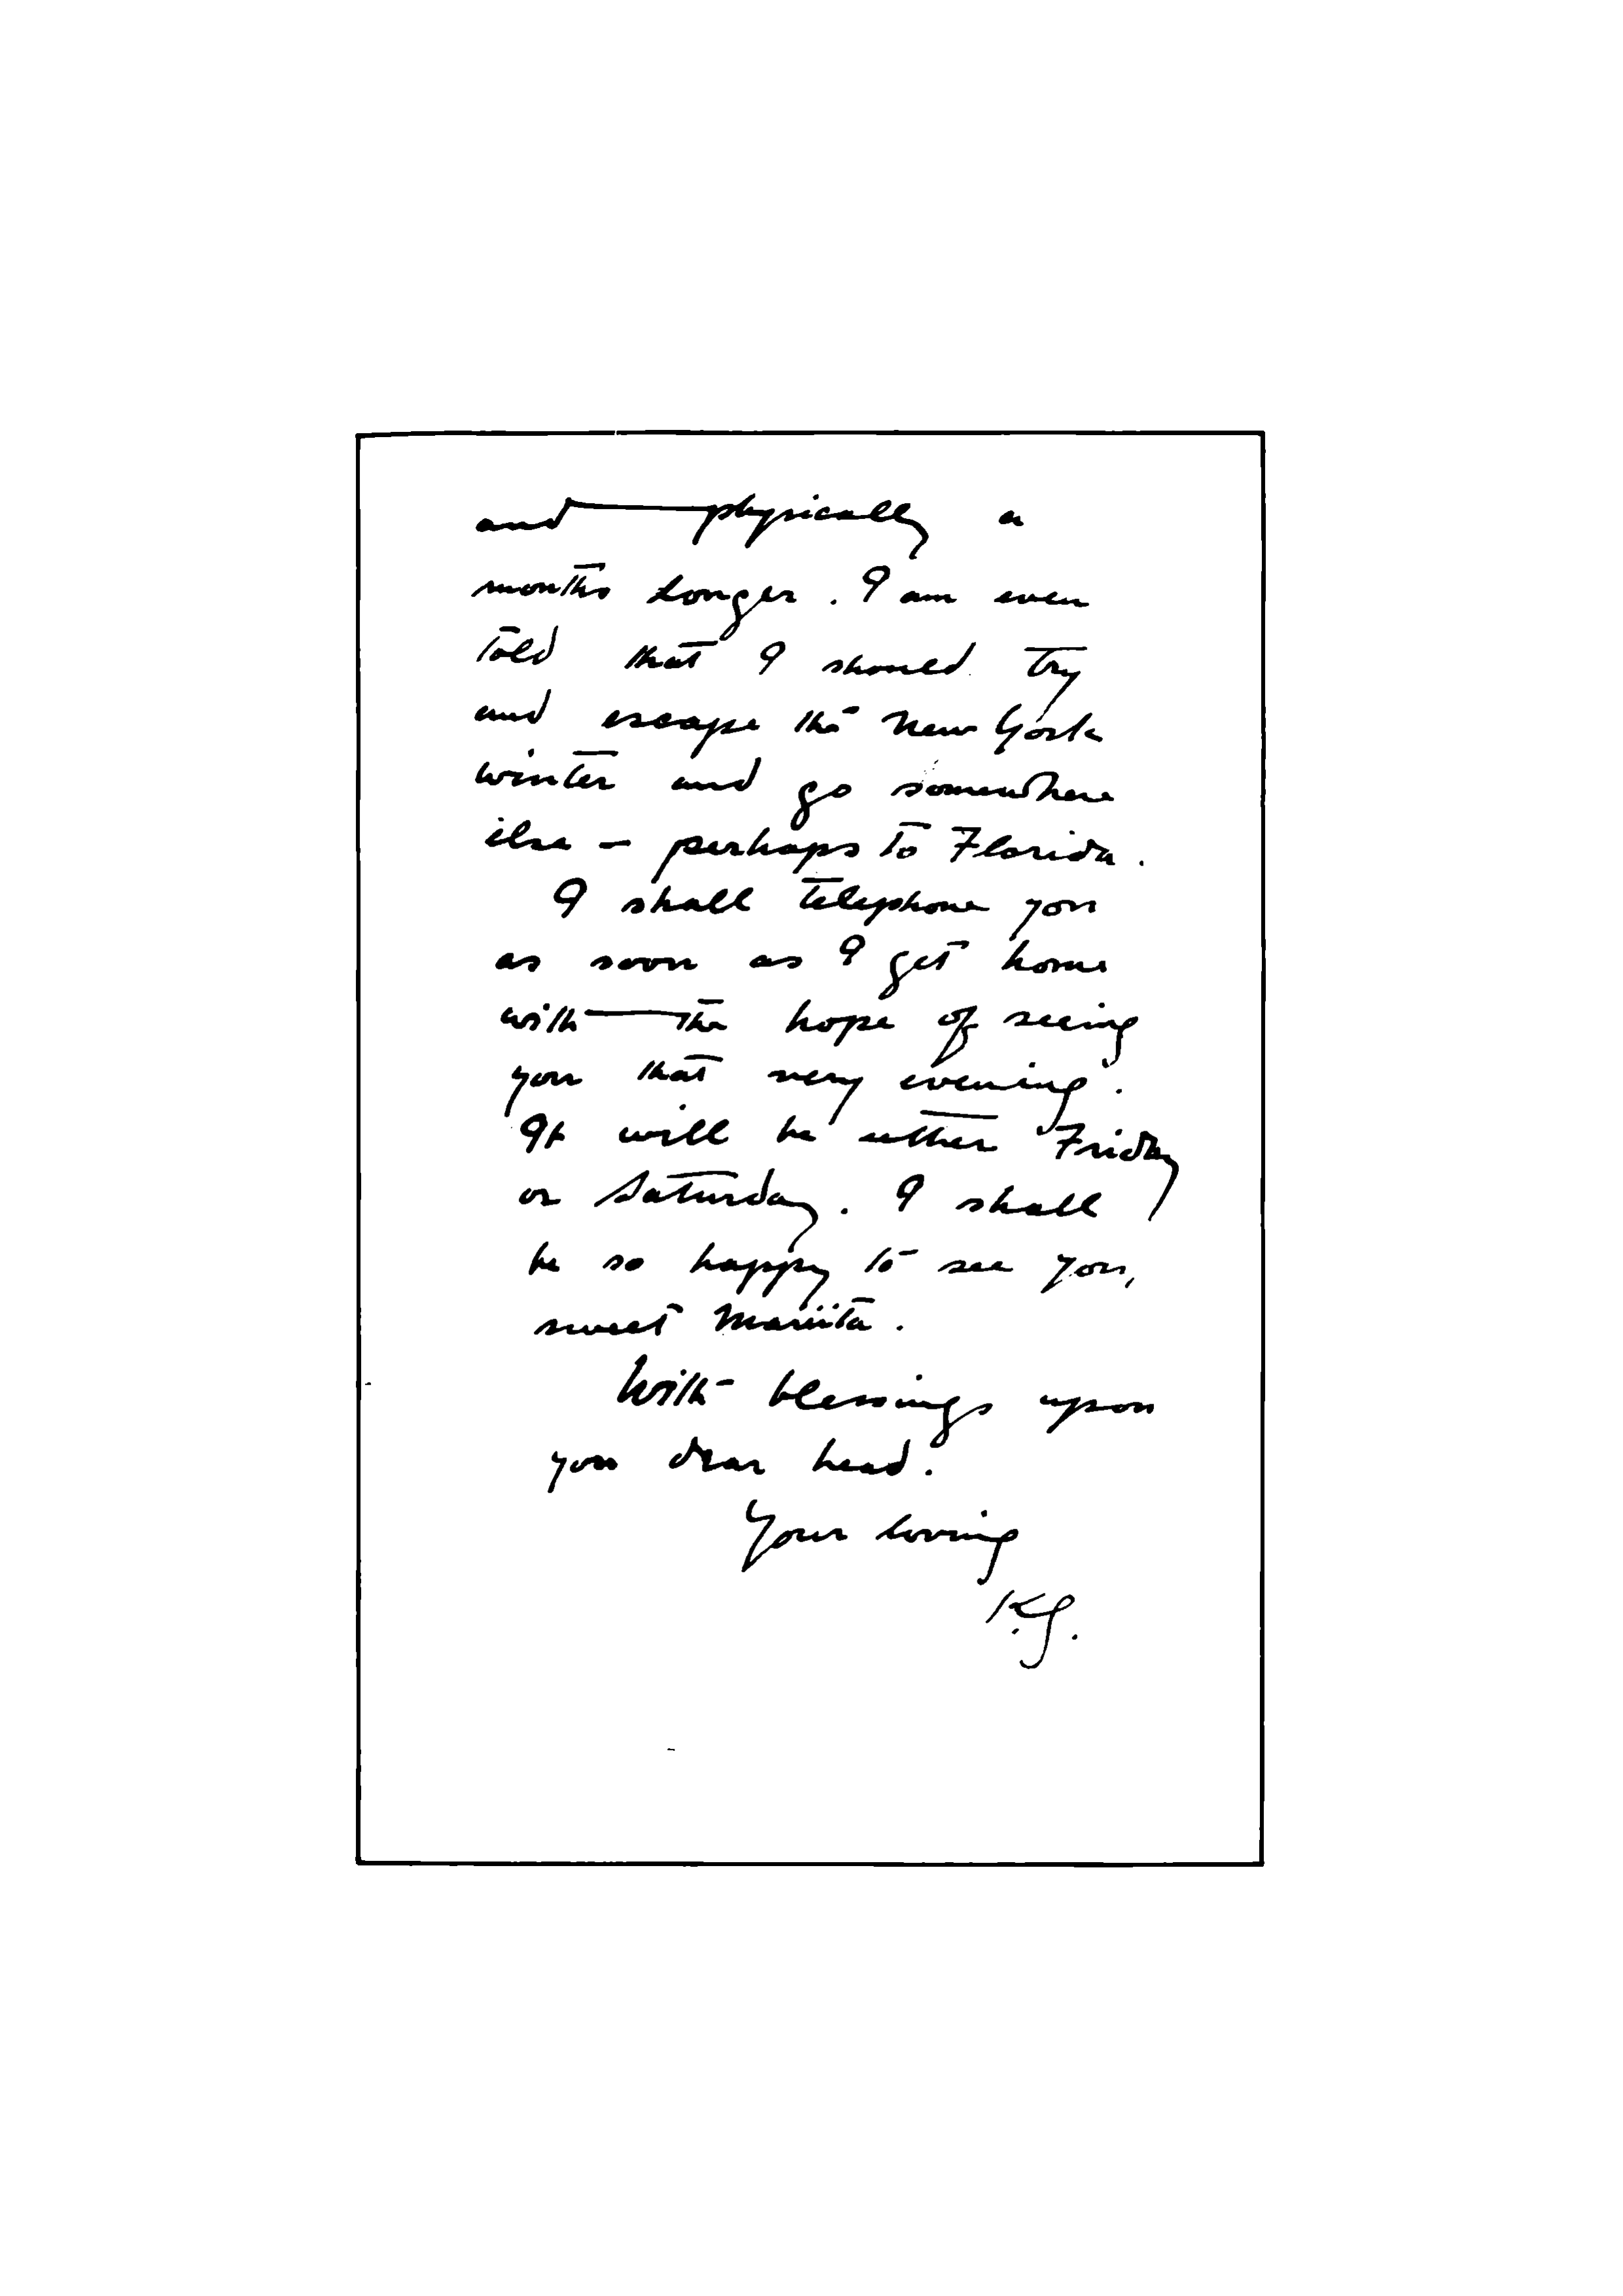 and physically a
months longer. I am even
told that I should try
and escape the New York
winter and go somewhere
else - perhaps to Florida.
I shall telephone you
as soon as I get home
with the hope of seeing
you that very evening.
It will be either Friday
or Saturday. I shall
be so happy to see you,
sweet Mariita.
With blessings upon
you dear head.
Your loving
K.G.